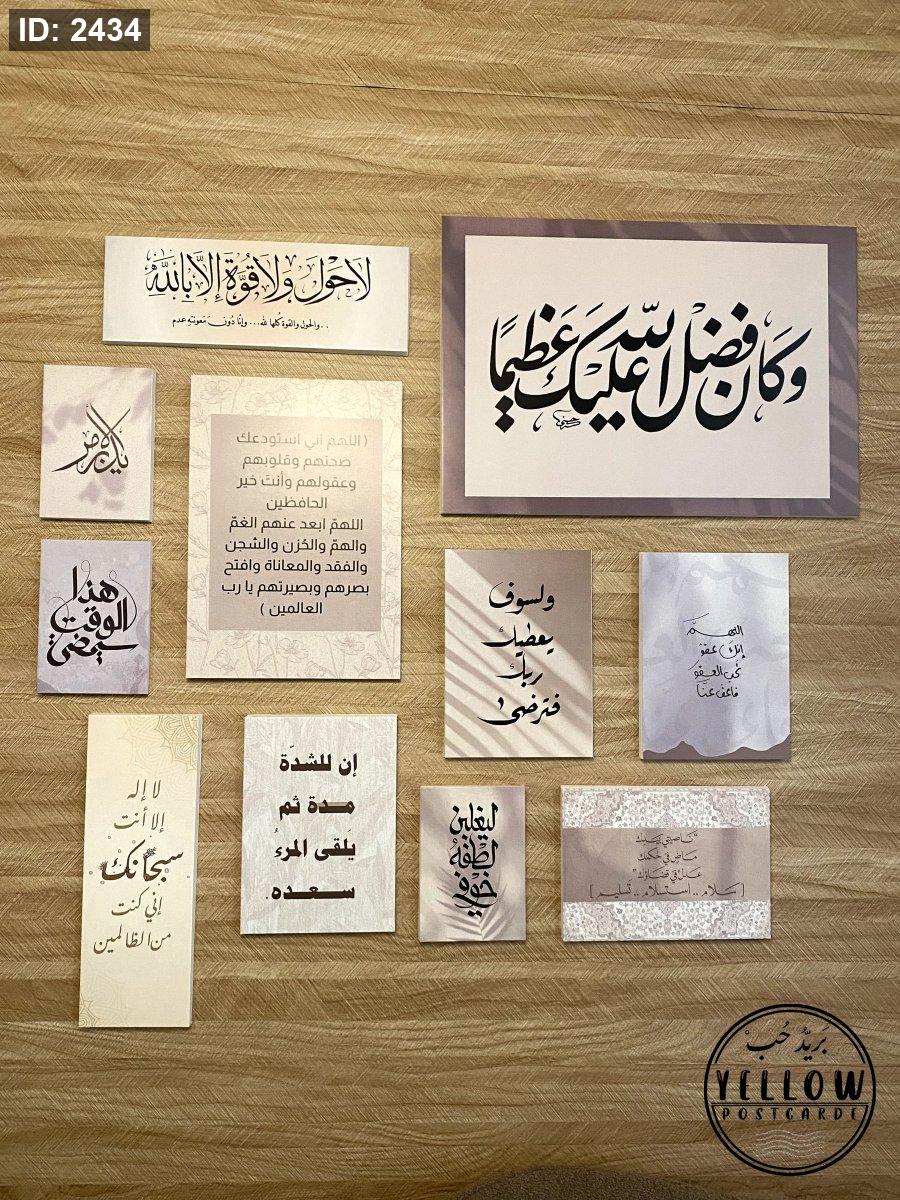 ID: 2434
لَا حَوْلَ وَلَا قُوَّةَ إِلَّا بِاللَّهِ
..والحول والقوة كلها لله... وإنّا دُونَ مَعونتِهِ عدم
وَكَانَ فَضْلُ اللَّهِ عَلَيْكَ عَظِيمًا
( اللهم اني استودعك
صحتهم وقلوبهم
وعقولهم وأنتَ خير
الحافظين
اللهمّ ابعد عنهم الغمّ
والهمّ والحُزن والشجن
والفقد والمعاناة وافتح
بصرهم وبصيرتهم يا رب
العالمين )
هذا
الوقت
سيمضي
ولسوف
يعطيك
ربك
فترضى
اللهمَّ
إنكَ عفوّ
تُحب العفوَ
فاعفُ عنّا
لا إله
إلا أنت
سبحانك
إني كنت
من الظالمين
إن للشدّة
مدة ثم
يَلقى المرءُ
سعده.
ليغلبن
لطفهُ
خوفي
"ناصيتي بيدك
ماضٍ في حكمك
عدلٌ في قضاؤك"
[ سلام .. استسلام .. تسليم ]
بَرِيدُ حُبّ
YELLOW
POSTCARDE